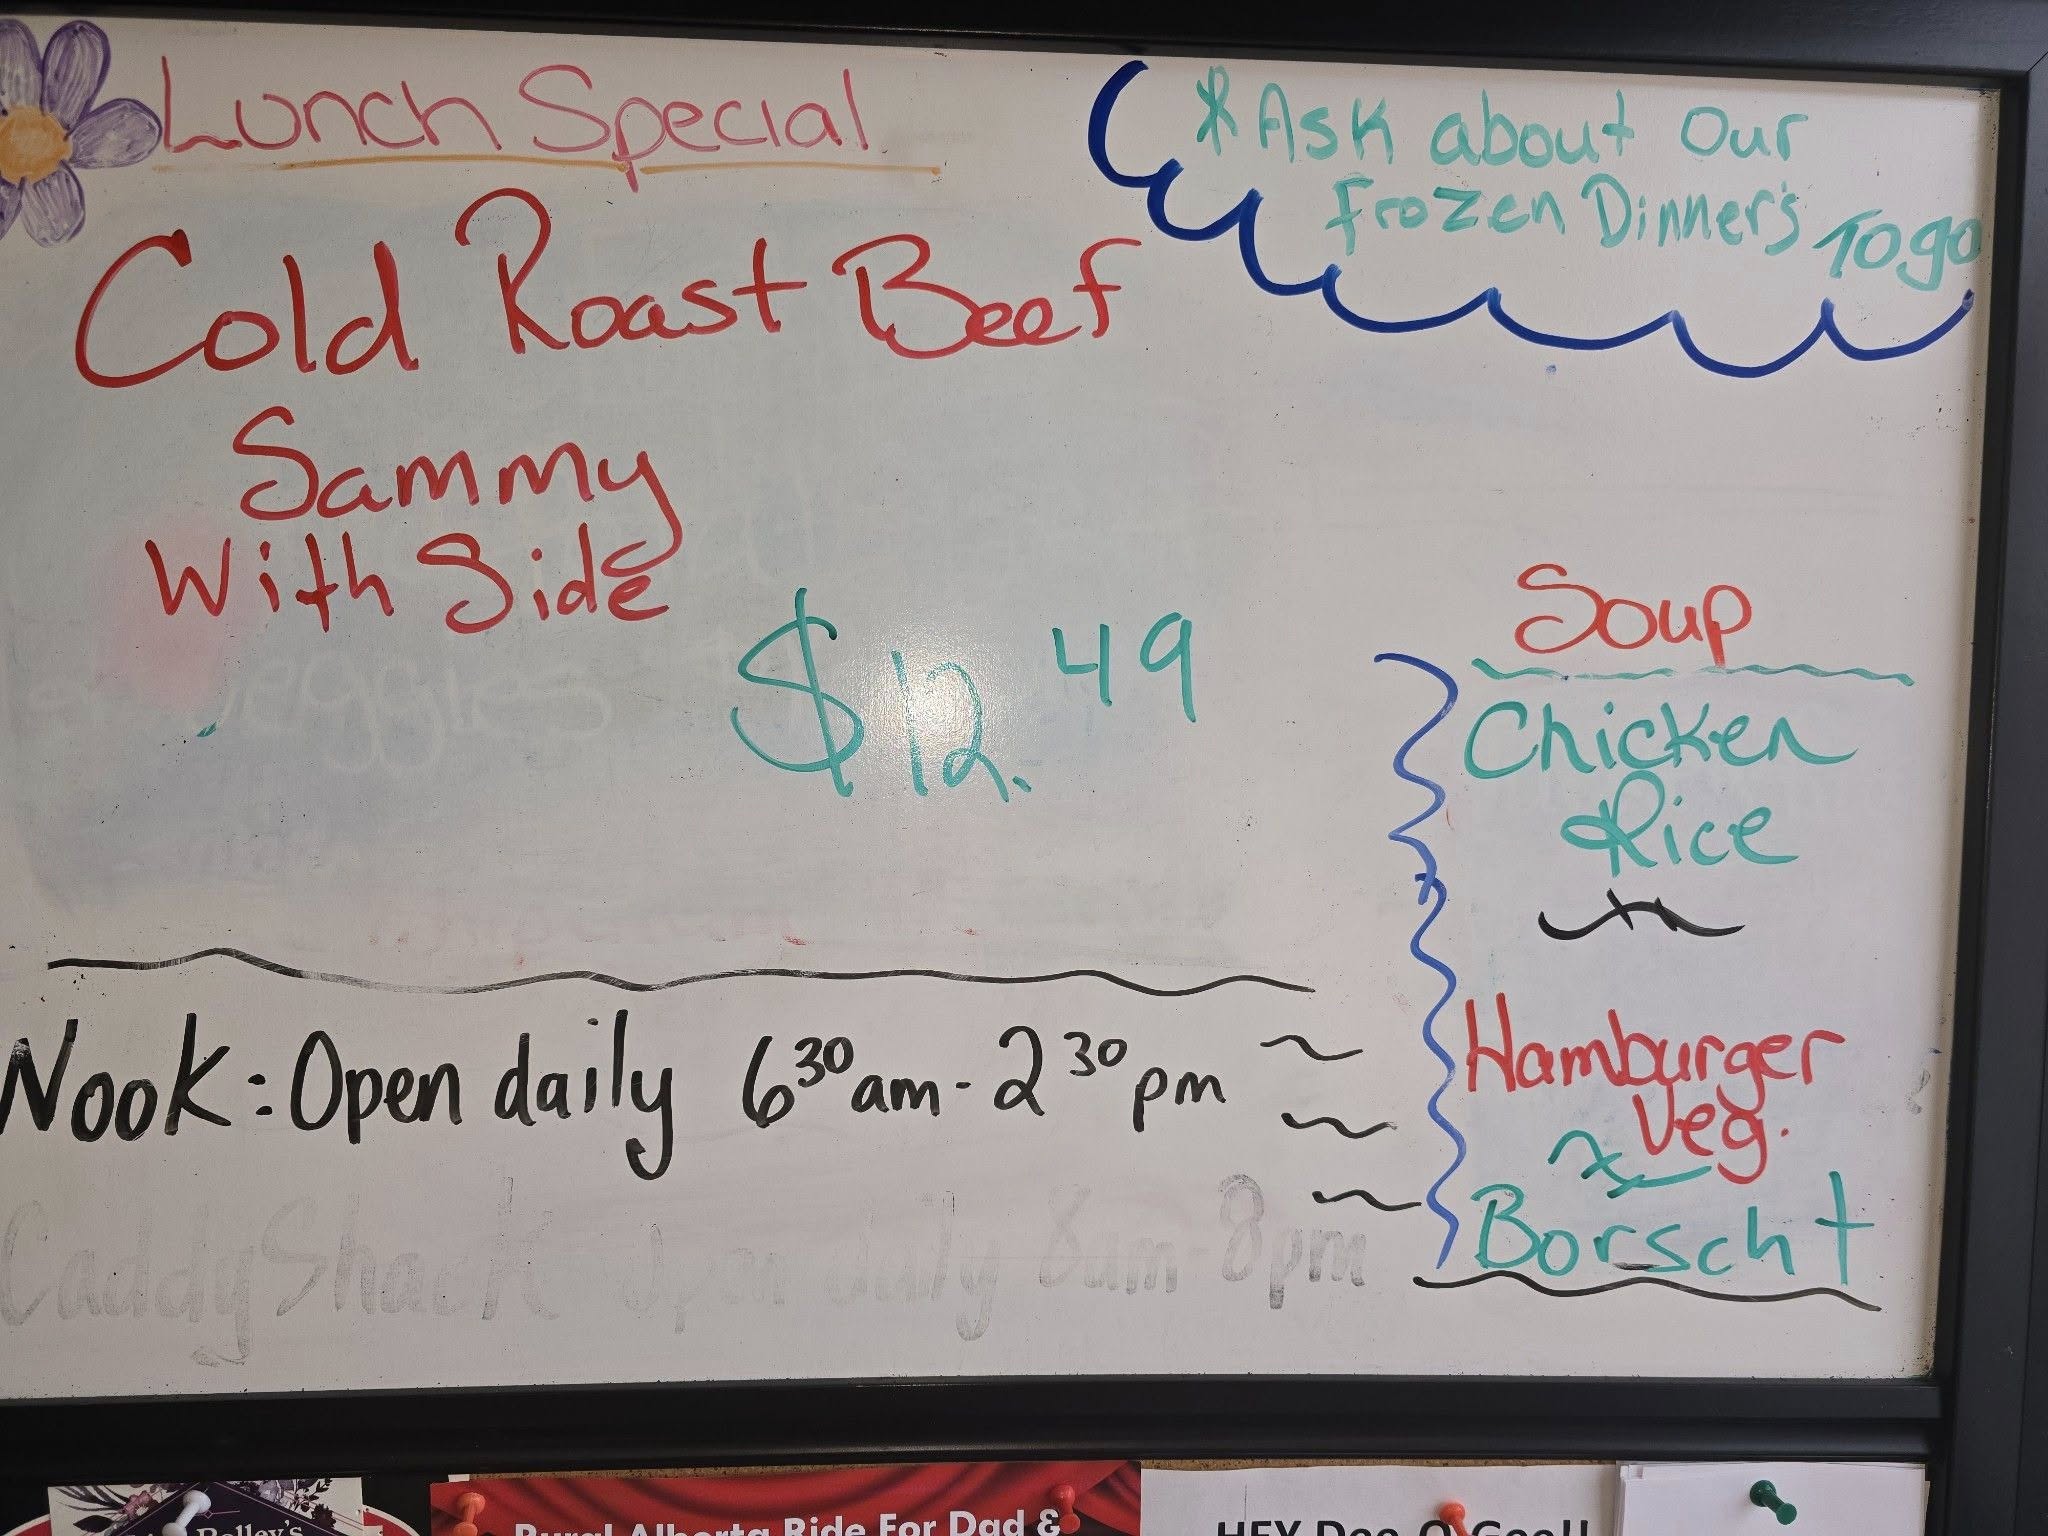 Lunch Special
Cold Roast Beef
Sammy
With Side
$12.49
*Ask about our
Frozen Dinner's To go
Soup
Chicken
Rice
Hamburger
Veg.
Borscht
Nook: Open daily 6 30 am - 2 30 pm
Caddy Shack Open daily 8am-8pm
Rural Alberta Ride For Dad &